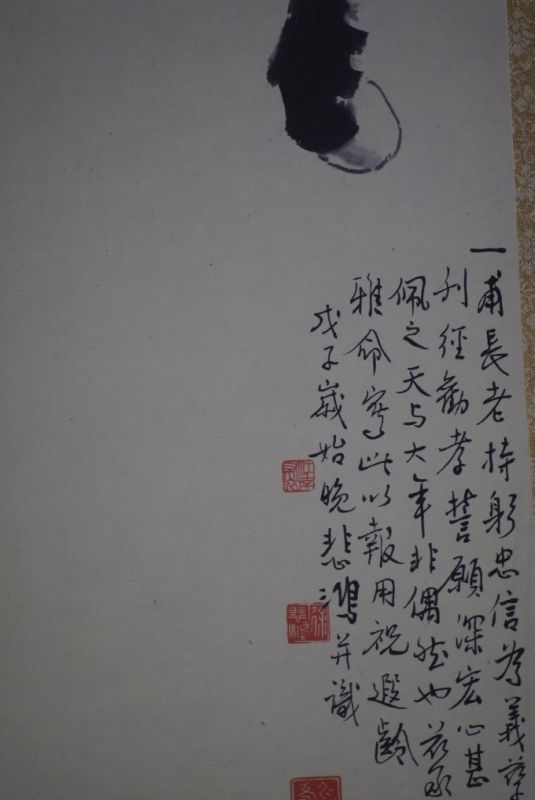 一甫長老持躬忠信為義举
刊經勸孝誓願深宏心甚
佩之天与大年非偶然也茲承
雅命寫此以報用祝遐齡
戊子歲始晚悲鴻并識